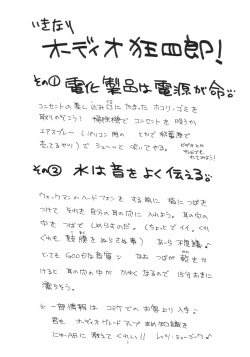 いきなり
オーディオ狂四郎!
その① 電化製品は電源が命
コンセントの差し込み口にたまった ホコリ・ゴミを
取りのぞこう! 掃除機で コンセントを 吸うか
エアスプレー (パソコン 用の とかで 秋葉原で
売てるヤツ) で シューッと 吹いてやる。
その② 水は音をよく伝える
ウォークマンのヘッドフォンを する前に 指につばを
つけて それを 自分の耳の穴に 入れよう。耳の穴の
中を つばで しめらすのだ。(ちょっとでイイ、くれ
ぐれも 鼓膜をぬらさぬ事) あら不思議♪
とても GOODな音響に なお つばが 乾き
けると 耳の穴の中が かゆくなるので 15分おきに
濡らそう。
※ 一部情報は コミケでのお客より入手♪
君も オーディオグレードアップ まめ知識を
教えてくれい!! レッツ・ミュージック♪